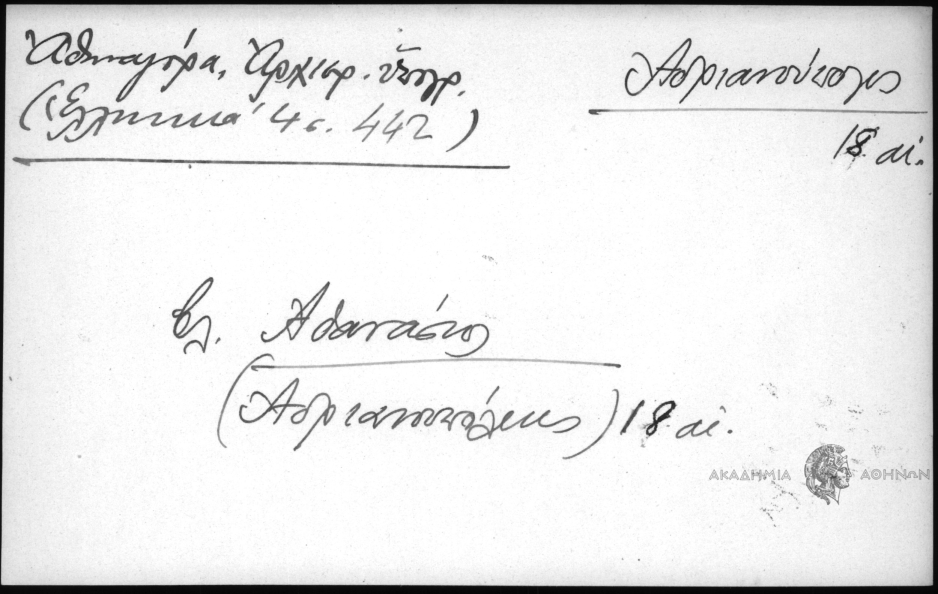 Ἀθηναγόρα, Ἀρχιερ. ὑπογρ.
(Ἑλληνικά 4 σ. 442)
Ἀδριανούπολις
18 αἰ.
βλ. Ἀθανάσιος
(Ἀδριανουπόλεως) 18 αἰ.
ΑΚΑΔΗΜΙΑ ΑΘΗΝΩΝ